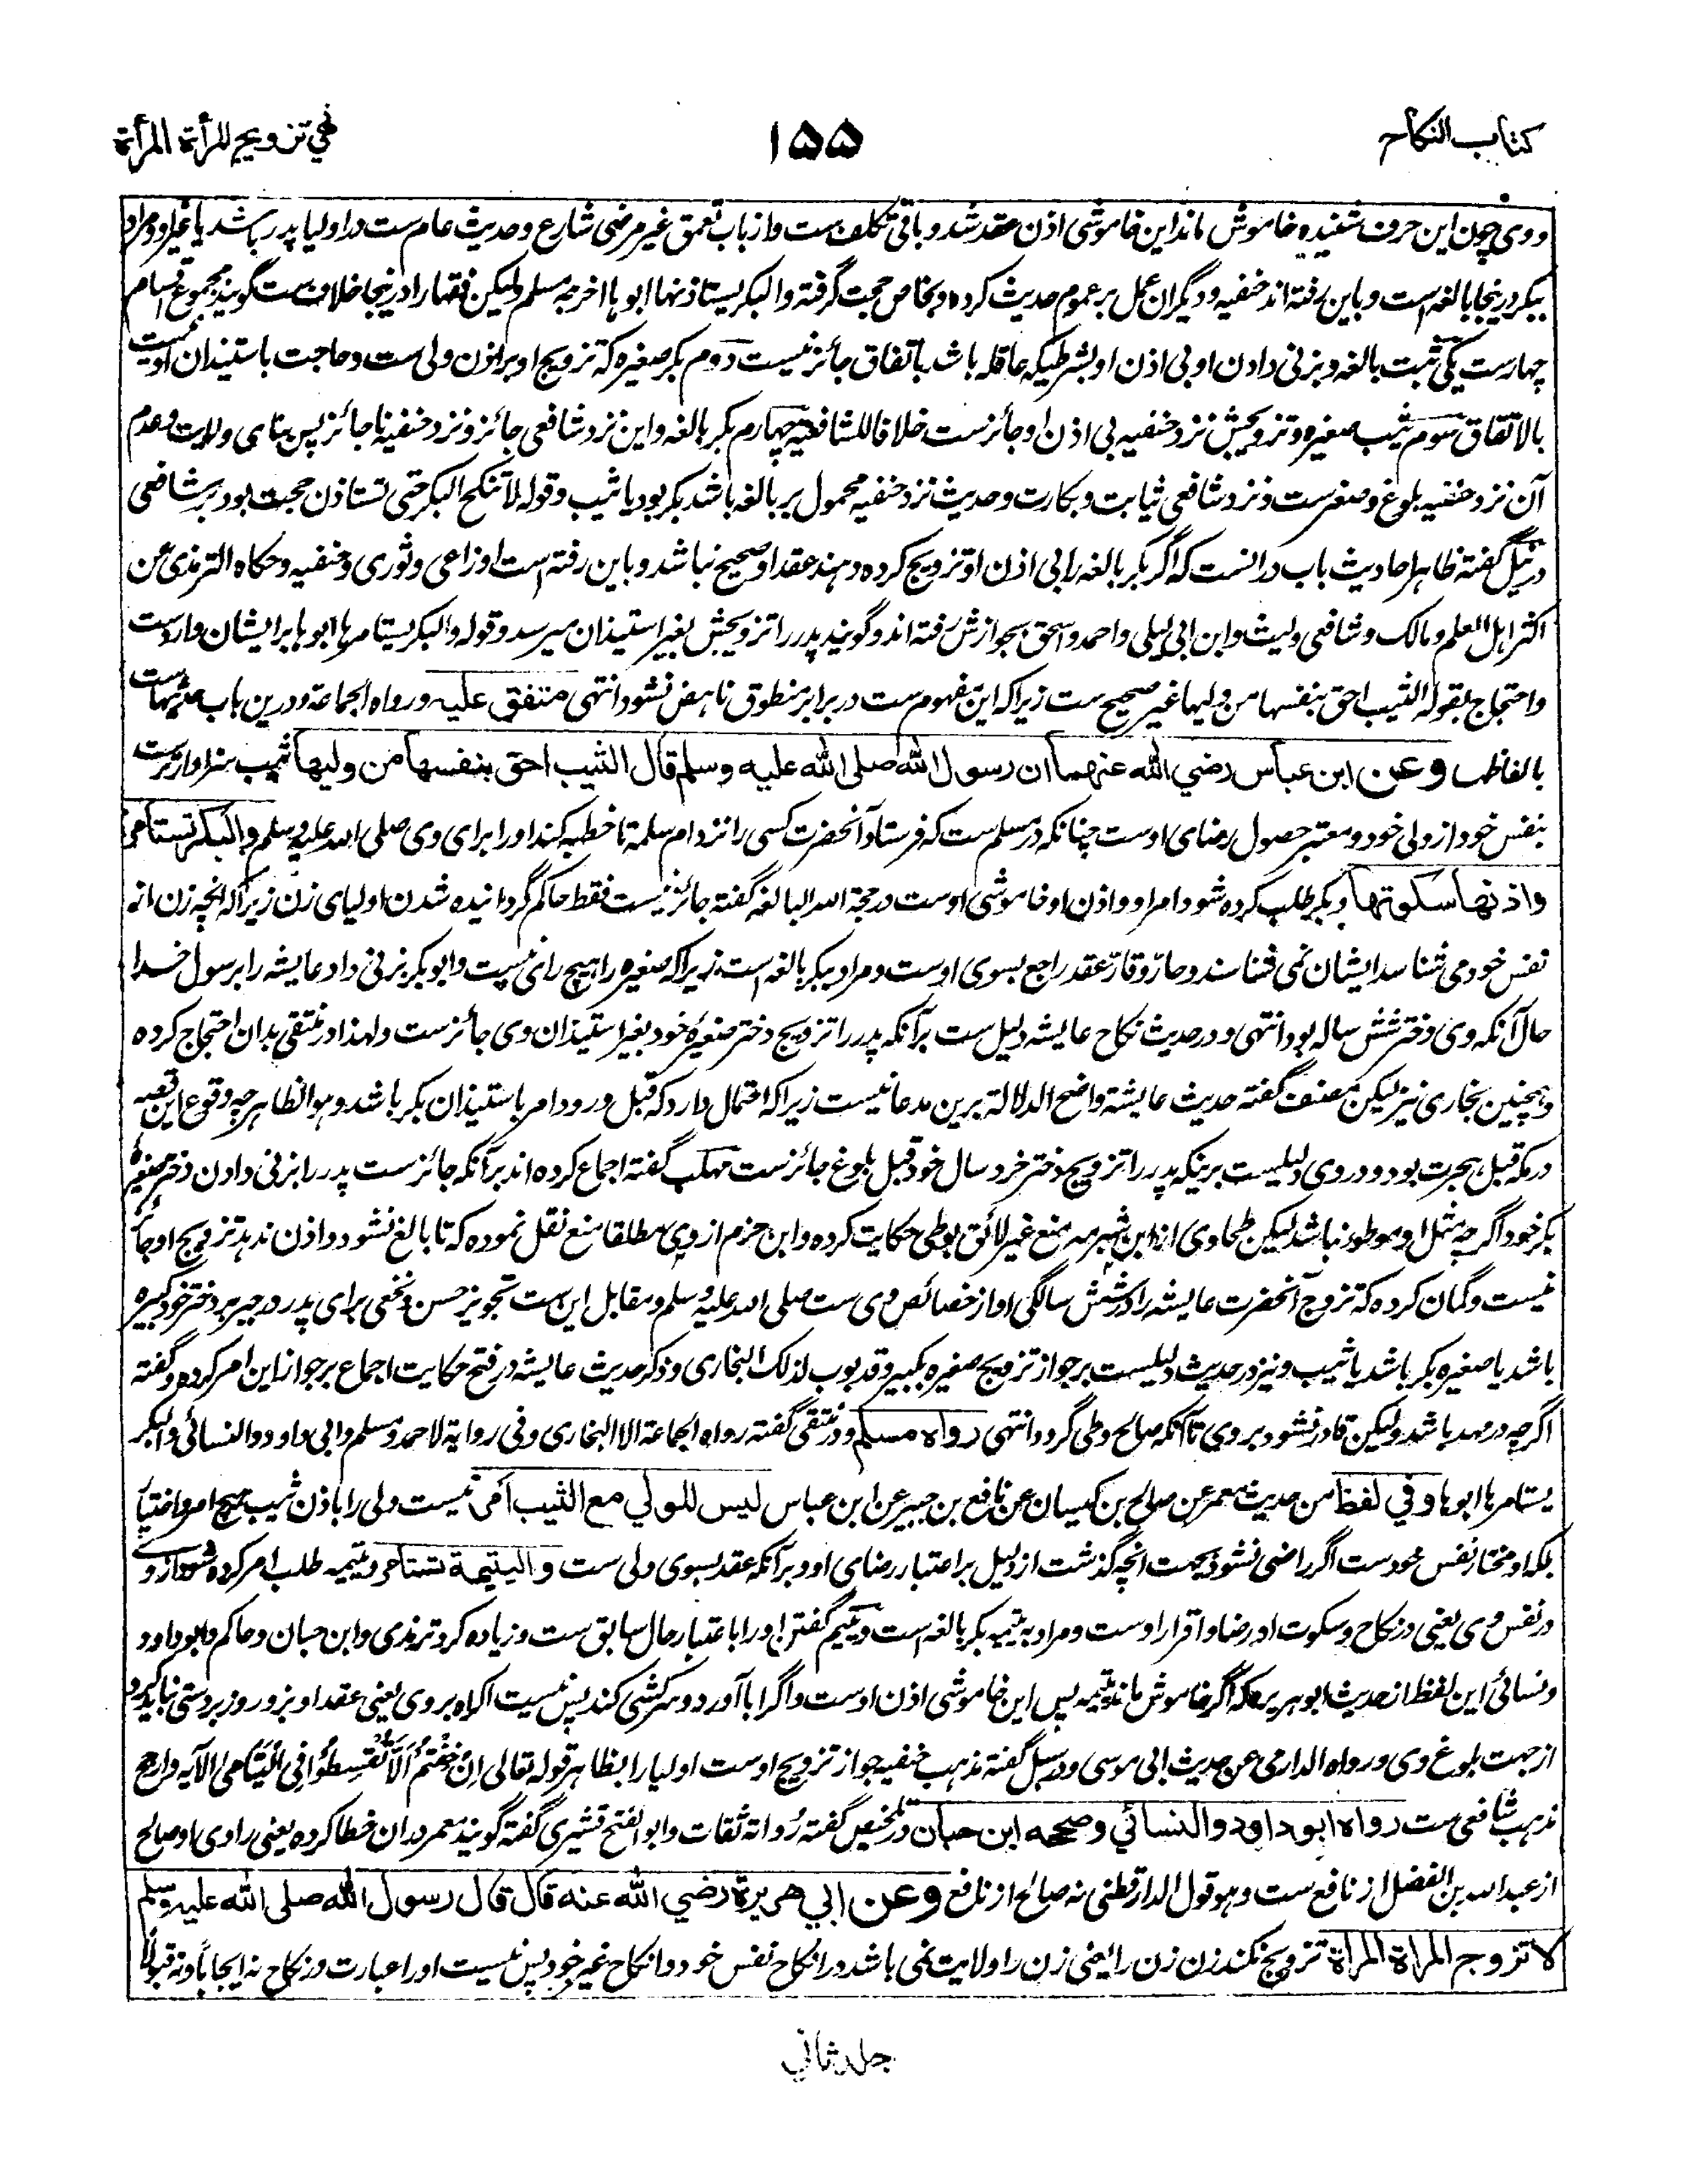 كتاب النكاح
١٥۵
نهي تزويج المرأة المرأة
و وی چون این حرف شنیده خاموش ماند این خاموشی اذن عقد شد و باقی تکلف ست و از باب تعمق غیر مرضی شارع و حدیث عام ست در اولیا پدر باشد یا غیر او و مراد
ببکر درینجا بالغه است و باین رفته اند حنفیه و دیگران عمل بر عموم حدیث کرده و بخاص حجت گرفته والبکر یستاذنها ابوها اخرجه مسلم ولیکن فقها را درینجا خلاف ست گویند مجموع اقسام
چهارست یکی ثیب بالغه و بزنی دادن او بی اذن او بشرطیکه عاقله باشد باتفاق جائز نیست دوم بکر صغیره که تزویج او بر اذن ولی ست و حاجت باستیذان او نیست
بالاتفاق سوم ثیب صغیره و تزویجش نزد حنفیه بی اذن او جائزست خلافا للشافعیه چهارم بکر بالغه و این نزد شافعی جائز و نزد حنفیه ناجائز پس بنای ولایت و عدم
آن نزد حنفیه بلوغ و صغرست و نزد شافعی ثیابت و بکارت و حدیث نزد حنفیه محمول بر بالغه باشد بکر بود یا ثیب و قوله لا تنکح البکر حتی تستاذن حجت بود بر شافعی
در نیل گفته ظاهر احادیث باب در آنست که اگر بکر بالغه را بی اذن او تزویج کرده دهند عقد او صحیح نباشد و باین رفته است اوزاعی و ثوری و حنفیه و حکاه الترمذی عن
اکثر اهل العلم و مالک و شافعی و لیث و ابن ابی لیلی و احمد و اسحق بجوازش رفته اند و گویند پدر را تزویجش بغیر استیذان میرسد و قوله والبکر یستامرها ابوها بر ایشان واردست
و احتجاج بقوله الثیب احق بنفسها من ولیها غیر صحیح ست زیراکه این مفهوم ست در برابر منطوق ناهض نشود انتهی متفق علیه و رواه الجماعة و درین باب حدیثهاست
بالفاظها وعن ابن عباس رضي الله عنهما ان رسول الله صلى الله عليه وسلم قال الثيب احق بنفسها من وليها ثیب سزاوارترست
بنفس خود از ولی خود و معتبر حصول رضای اوست چنانکه در مسلم ست که فرستاد آنحضرت کسی را نزد ام سلمه تا خطبه کند او را برای وی صلی الله علیه وسلم والبكر تستامر
واذنها سكوتها و بکر طلب کرده شود امر او و اذن او خاموشی اوست در حجة الله البالغه گفته جائز نیست فقط حاکم گردانیده شدن اولیای زن زیراکه انچه زن از
نفس خود می شناسد ایشان نمی شناسند و حار و قار عقد راجع بسوی اوست و مراد ببکر بالغه است زیراکه صغیره را هیچ رای نیست و ابوبکر بزنی داد عایشه را برسول خدا
حال آنکه وی دختر شش ساله بود انتهی و در حدیث نکاح عایشه دلیل ست بر آنکه پدر را تزویج دختر صغیره خود بغیر استیذان وی جائزست ولهذا در منتقی بدان احتجاج کرده
و همچنین بخاری نیز لیکن مصنف گفته حدیث عایشه واضح الدلالة برین مدعا نیست زیراکه احتمال دارد که قبل ورود امر باستیذان بکر باشد و هو الظاهر چه وقوع این قصه
در مکه قبل هجرت بود و در وی دلیلست برینکه پدر را تزویج دختر خرد سال خود قبل بلوغ جائزست مهلب گفته اجماع کرده اند بر آنکه جائزست پدر را بزنی دادن دختر صغیره
بکر خود اگرچه مثل او موطوءه نباشد لیکن طحاوی از ابن شبرمه منع غیر لائق بوطی حکایت کرده و ابن حزم از وی مطلقا منع نقل نموده که تا بالغ نشود و اذن ندهد تزویج او جائز
نیست و گمان کرده که تزوج آنحضرت عایشه را در شش سالگی او از خصائص وی ست صلی الله علیه وسلم و مقابل این ست تجویز حسن و نخعی برای پدر در جبر بر دختر خود کبیره
باشد یا صغیره بکر باشد یا ثیب و نیز در حدیث دلیلست بر جواز تزویج صغیره بکبیر و قد بوب لذلک البخاری و ذکر حدیث عایشه در فتح حکایت اجماع بر جواز این امر کرده و گفته
اگرچه در مهد باشد ولیکن قادر نشود بر وی تا آنکه صالح وطی گردد انتهی رواه مسلم و در منتقی گفته رواه الجماعة الا البخاری و فی روایة لاحمد و مسلم و ابی داود والنسائی والبکر
یستامرها ابوها وفي لفظ من حدیث معمر عن صالح بن کیسان عن نافع بن جبیر عن ابن عباس ليس للولي مع الثيب امر نیست ولی را باذن ثیب هیچ امر و اختیار
بلکه او مختار نفس خودست اگر راضی نشود بجهت انچه گذشت از دلیل بر اعتبار رضای او و بر آنکه عقد بسوی ولی ست واليتيمة تستامر و یتیمه طلب امر کرده شود از وی
در نفس وی یعنی در نکاح و سکوت او رضا و اقرار اوست و مراد به یتیمه بکر بالغه است و یتیم گفتن او را باعتبار حال سابق ست و زیاده کرد ترمذی و ابن حبان و حاکم و ابوداود
و نسائی این لفظ از حدیث ابوهریره که اگر خاموش ماند یتیمه پس این خاموشی اذن اوست و اگر ابا آورد و سرکشی کند پس نیست اکراه بر وی یعنی عقد او بزور و زبردستی نباید کرد
از جهت بلوغ وی و رواه الدارمی عن حدیث ابی موسی و در سبل گفته مذهب حنفیه جواز تزویج اوست اولیا را بظاهر قوله تعالی اِنْ خِفْتُمْ اَلَّا تُقْسِطُوا فِي الْيَتَامى الآیه و ارجح
مذهب شافعی ست رواه ابوداود والنسائي وصححه ابن حبان در تلخیص گفته رواته ثقات و ابوالفتح قشیری گفته گویند معمر در ان خطا کرده یعنی راوی او صالح
از عبد الله بن الفضل از نافع ست و هو قول الدارقطنی نه صالح از نافع وعن ابي هريرة رضي الله عنه قال قال رسول الله صلى الله عليه وسلم
لا تزوج المرأة المرأة تزویج نکند زن زن را یعنی زن را ولایت نمی باشد در انکاح نفس خود و انکاح غیر خود پس نیست او را عبارت در نکاح نه ایجاباً و نه قبولاً
جلد ثاني